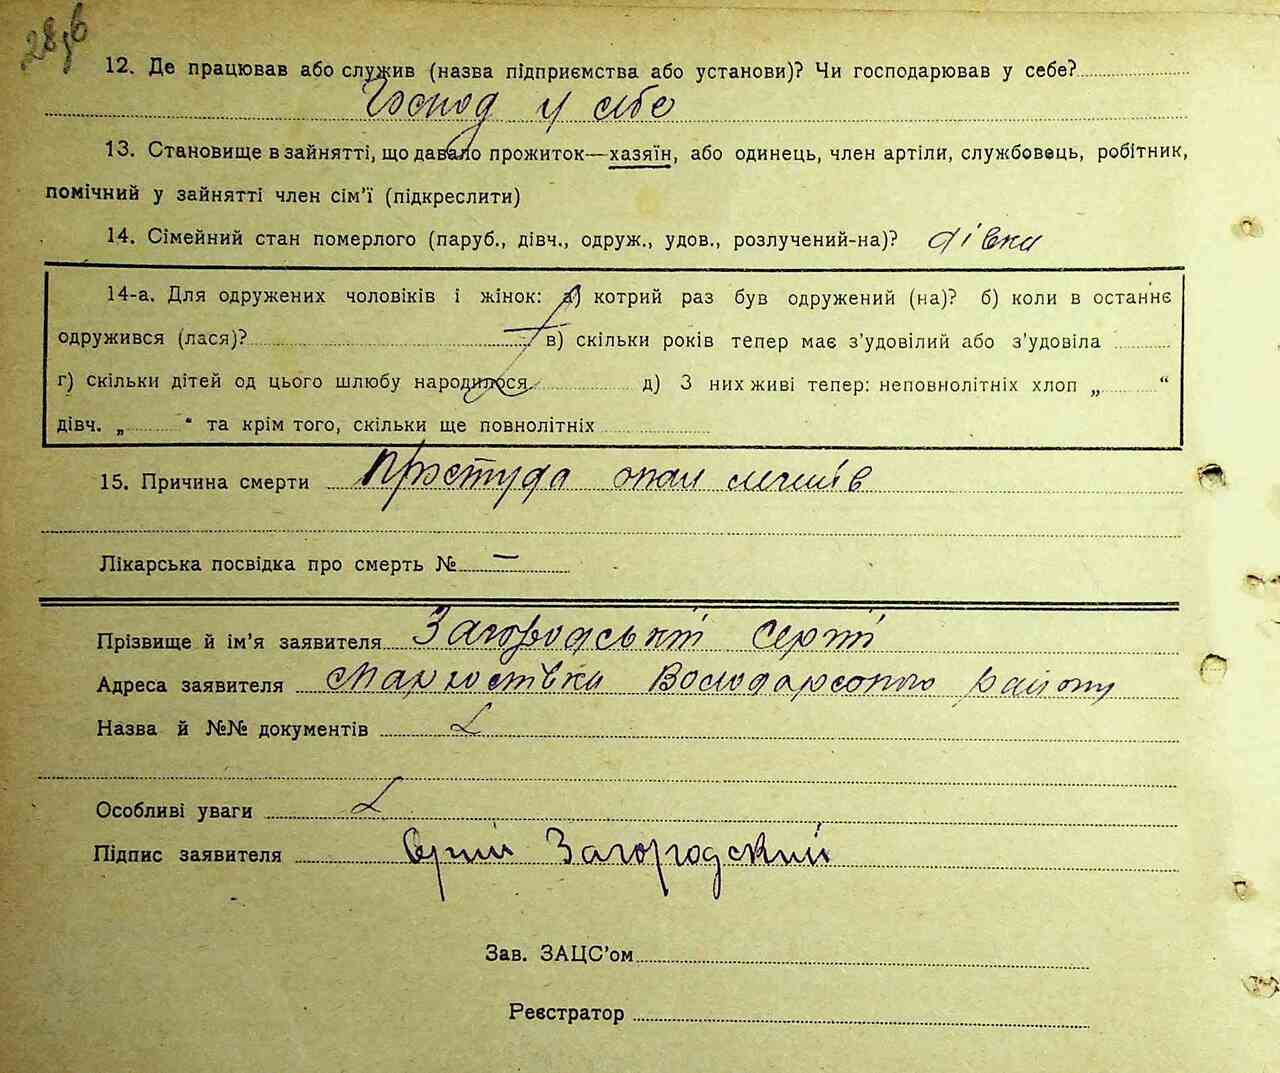 28зв
12. Де працював або служив (назва підприємства або установи)? Чи господарював у себе?
Господ у себе
13. Становище в зайнятті, що давало прожиток—хазяїн, або одинець, член артіли, службовець, робітник,
помічний у зайнятті член сім'ї (підкреслити)
14. Сімейний стан померлого (паруб., дівч., одруж., удов., розлучений-на)? дівка
14-а. Для одружених чоловіків і жінок: а) котрий раз був одружений (на)? б) коли в останнє
одружився (лася)? в) скільки років тепер має з'удовілий або з'удовіла
г) скільки дітей од цього шлюбу народилося д) З них живі тепер: неповнолітніх хлоп „ “
дівч. „ “ та крім того, скільки ще повнолітніх
15. Причина смерти Простуда опал легенів
Лікарська посвідка про смерть № —
Прізвище й ім'я заявителя Загородській Сергій
Адреса заявителя Володарського району
Назва й №№ документів
Особливі уваги
Підпис заявителя Загородский
Зав. ЗАЦС'ом
Реєстратор